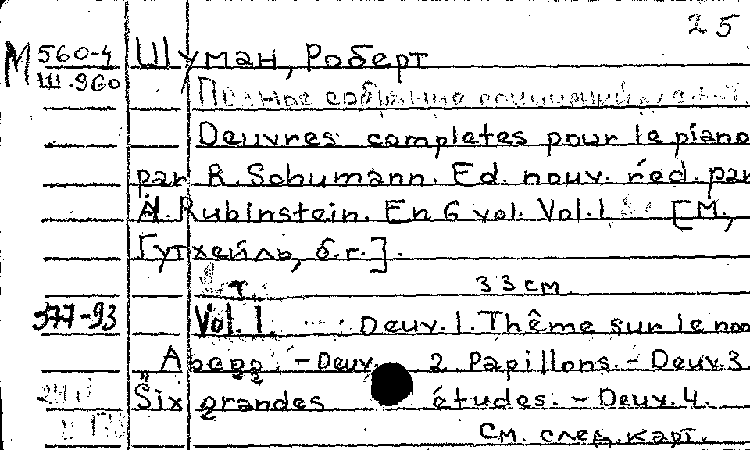 25
М 560-4 Шуман, Роберт
Ш.960
Полное собрание сочинений
Oeuvres completes pour le piano
par R. Schumann. Ed. nouv. réd. par
A. Rubinstein. En 6 vol. Vol. 1 [М.,
Гутхейль, б.г.].
т. 33 см.
577-93 Vol. 1. Oeuv. 1. Thême sur le nom
Abegg. - Oeuv. 2. Papillons. - Oeuv. 3.
Six grandes études. - Oeuv. 4.
См. след. карт.